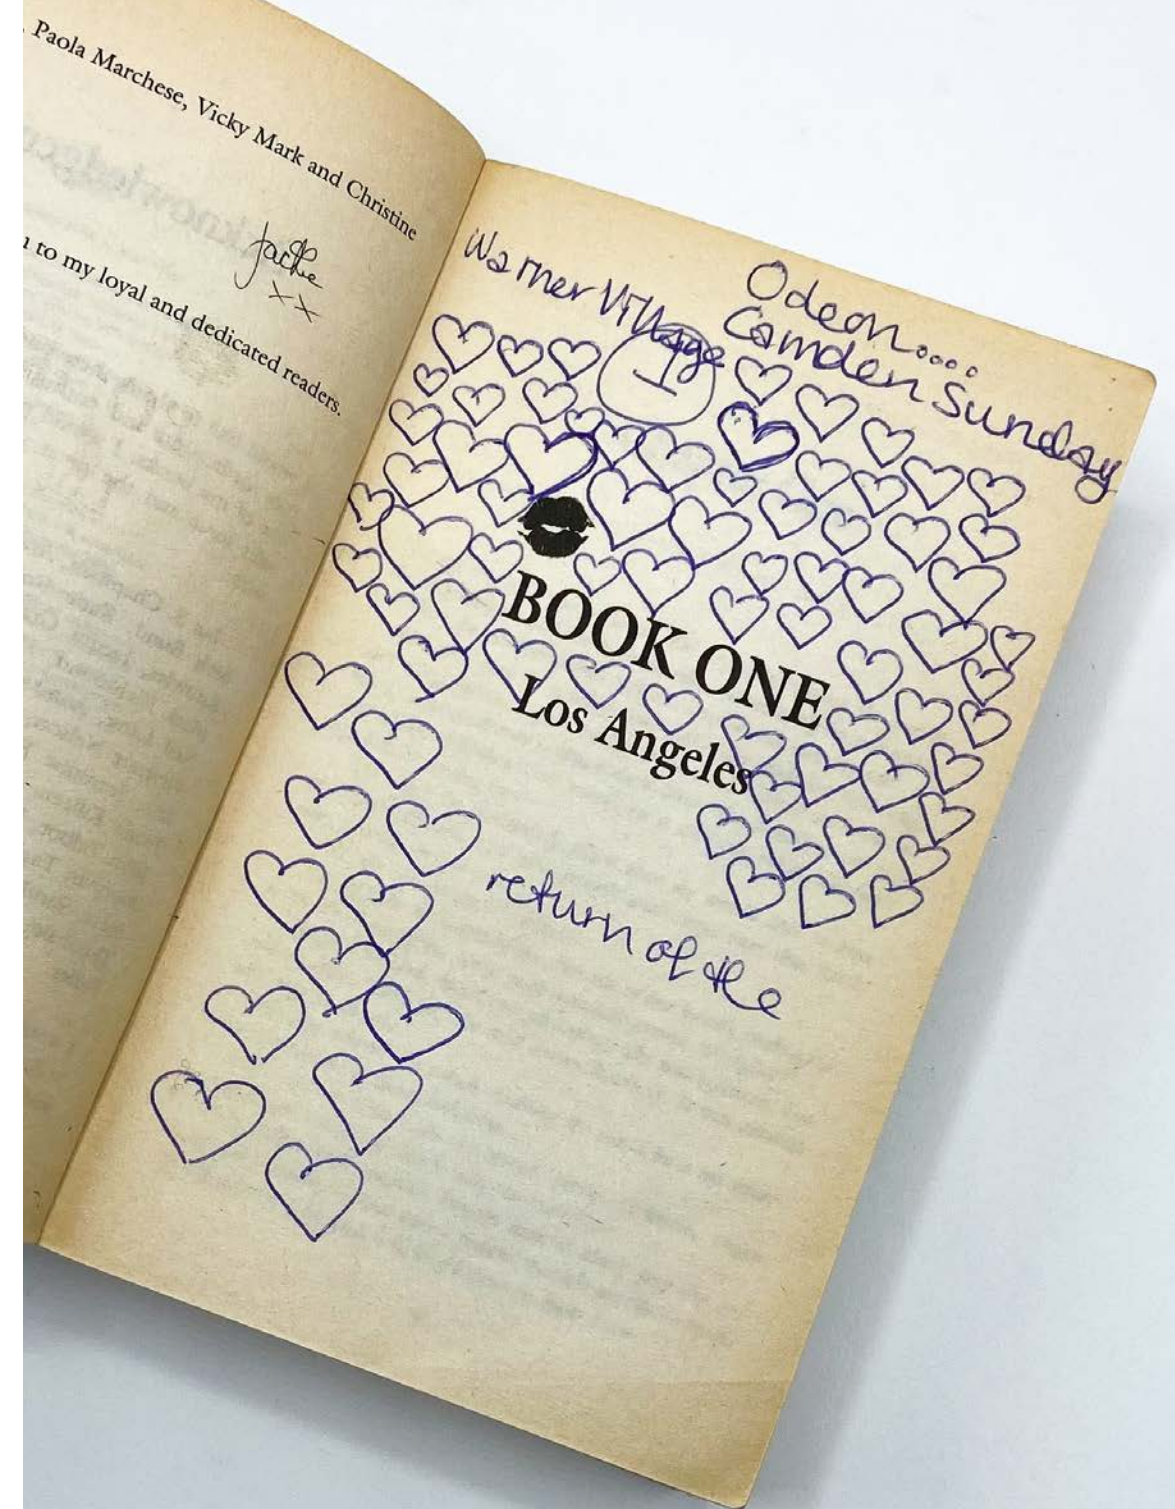 Paola Marchese, Vicky Mark and Christine
Jackie
xx
to my loyal and dedicated readers.
Warner Village
Odeon....
Camden Sunday
1
BOOK ONE
Los Angeles
return of the